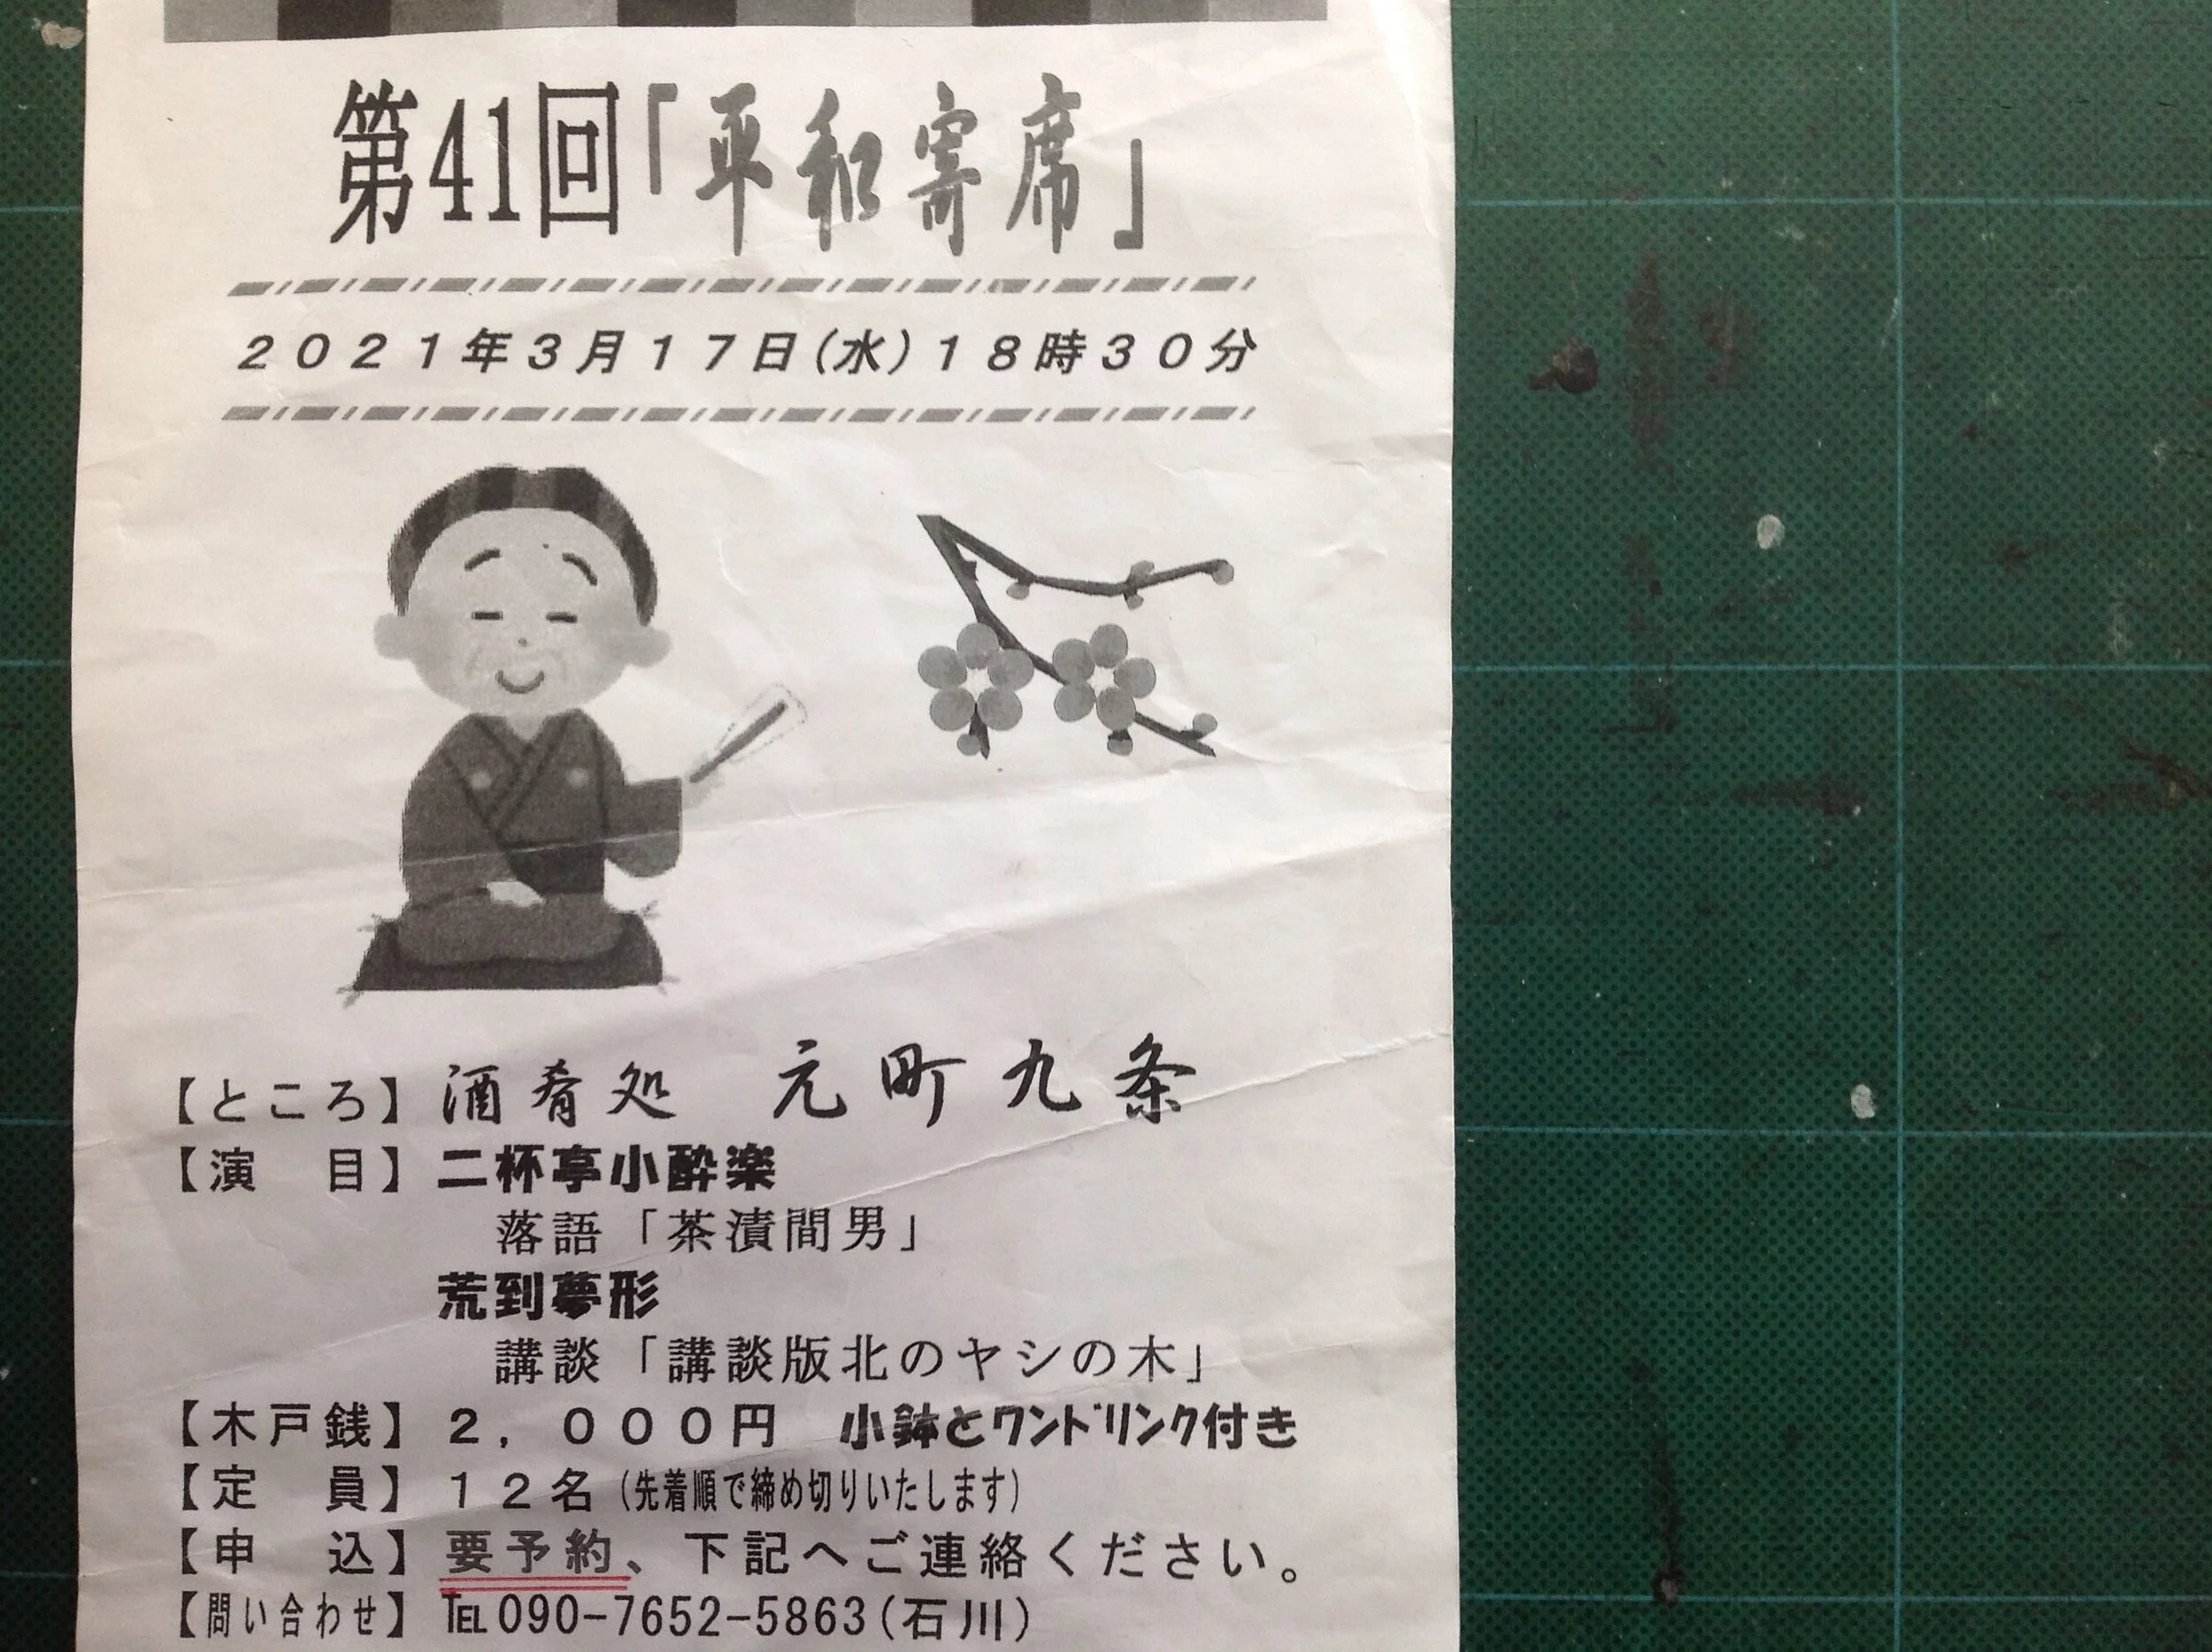 第41回「平和寄席」
２０２１年３月１７日(水)１８時３０分
【ところ】酒肴処　元町九条
【演　目】二杯亭小酔楽
落語「茶漬間男」
荒到夢形
講談「講談版北のヤシの木」
【木戸銭】２，０００円　小鉢とﾜﾝﾄﾞﾘﾝｸ付き
【定　員】１２名（先着順で締め切りいたします）
【申　込】要予約、下記へご連絡ください。
【問い合わせ】℡090-7652-5863(石川)